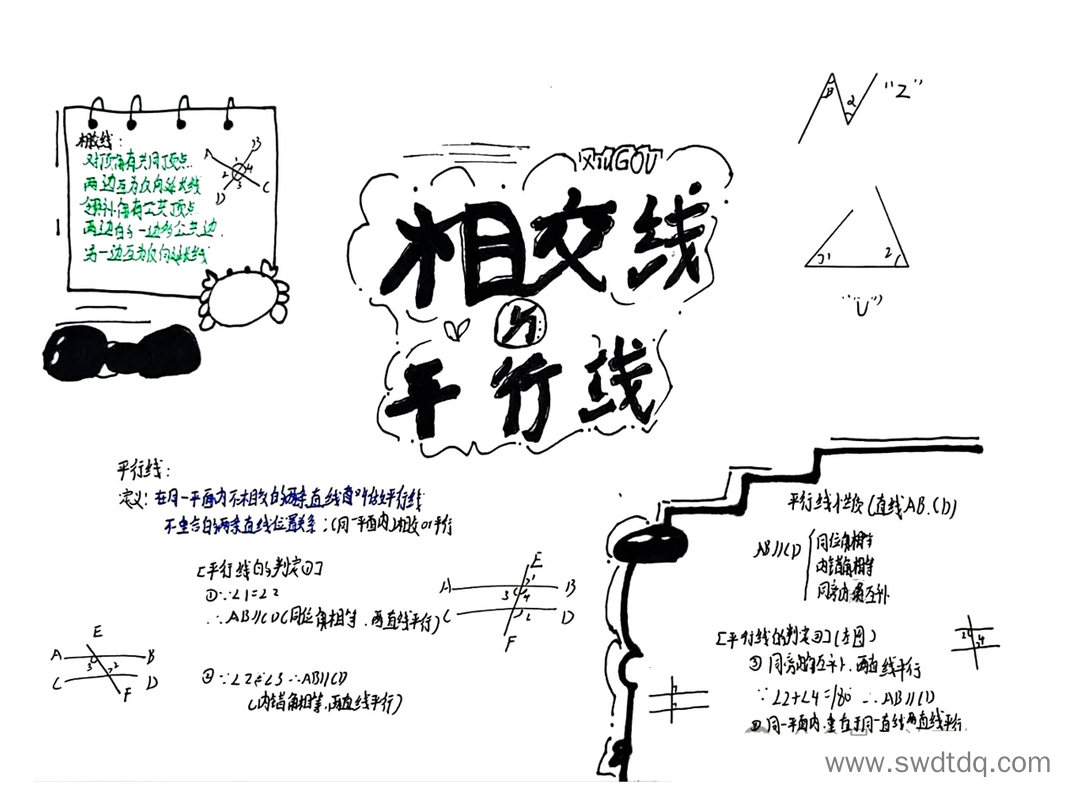 相交线:
对顶角有共同顶点
两边互为反向延长线
邻补角有公共顶点
两边的一边为公共边
另一边互为反向延长线
A B 1 2 4 3 D C
XIUGOU
相交线
与
平行线
"Z"
2
1 2
"U"
平行线:
定义: 在同一平面内不相交的两条直线直叫做平行线
不重合的两条直线位置关系:(同一平面内)相交or平行
[平行线的判定①]
①∵∠1=∠2
∴AB∥CD(同位角相等,两直线平行)
E
A 1 B
3 4
C 2 D
F
E
A B
3 2
C D
F
②∵∠2=∠3 ∴AB∥CD
(内错角相等,两直线平行)
平行线性质(直线AB、CD)
AB∥CD
同位角相等
内错角相等
同旁内角互补
[平行线的判定②](右图)
③同旁内角互补,两直线平行
∵∠2+∠4=180 ∴AB∥CD
④同一平面内,垂直于同一直线两直线平行.
2 4
www.swdtdq.com